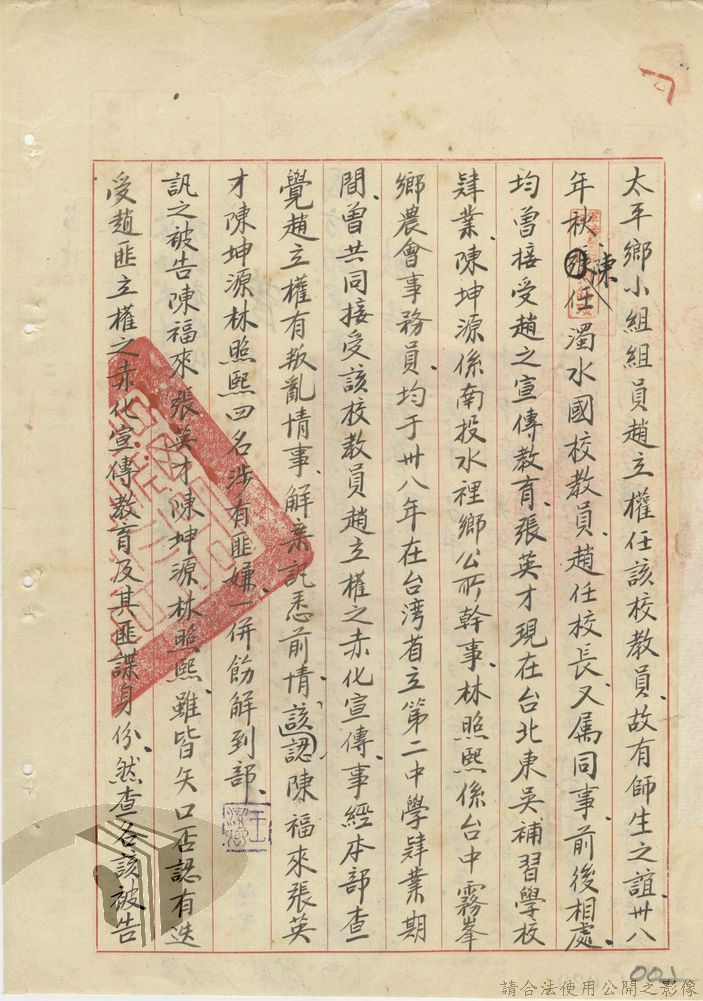 太平鄉小組組員趙立權任該校教員、故有師生之誼、卅八
年秋、陳任濁水國校教員、趙任校長、又屬同事、前後相處、
均曾接受趙之宣傳教育、張英才現在台北東吳補習學校
肄業、陳坤源係南投水裡鄉公所幹事、林照熙係台中霧峯
鄉農會事務員、均于卅八年在台湾省立第二中學肄業期
間、曾共同接受該校教員趙立權之赤化宣傳、事經本部查
覺趙立權有叛亂情事、解案訊悉前情、該認陳福來張英
才陳坤源林照熙四名涉有匪嫌、一併飭解到部、
訊之被告陳福來、張英才、陳坤源、林照熙、雖皆矢口否認有迭
受趙匪立權之赤化宣傳教育及其匪諜身份、然查各該被告
001
請合法使用公開之影像